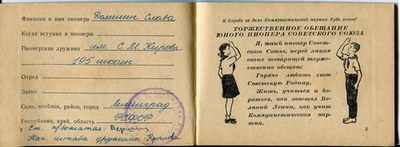 Фамилия и имя пионера Калинин Слава
Когда вступил в пионеры
Пионерская дружина им. С. М. Кирова
195 школы
Отряд
Звено
Село, посёлок, район, город Ленинград
Республика, край, область РСФСР
Ст. пионервожатая
Нач. штаба дружины
2
К борьбе за дело Коммунистической партии будь готов!
ТОРЖЕСТВЕННОЕ ОБЕЩАНИЕ
ЮНОГО ПИОНЕРА СОВЕТСКОГО СОЮЗА
Я, юный пионер Совет-
ского Союза, перед лицом
своих товарищей торже-
ственно обещаю:
Горячо любить свою
Советскую Родину.
Жить, учиться и бо-
роться, как завещал Ве-
ликий Ленин, как учит
Коммунистическая пар-
тия.
3